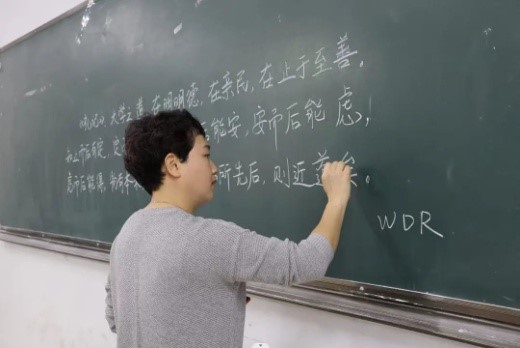 《礼记》大学之道,在明明德,在亲民,在止于至善,
知止而后有定,定 后能安,安而后能虑,
虑而后能得,物有本末 所先后,则近道矣。
WDR